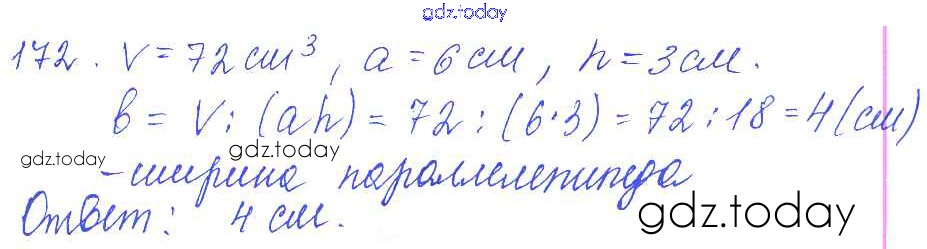 gdz.today
172. V = 72 см³, a = 6 см, h = 3 см.
b = V : (ah) = 72 : (6·3) = 72 : 18 = 4 (см)
gdz.today gdz.today
- ширина параллелепипеда
Ответ: 4 см.
gdz.today